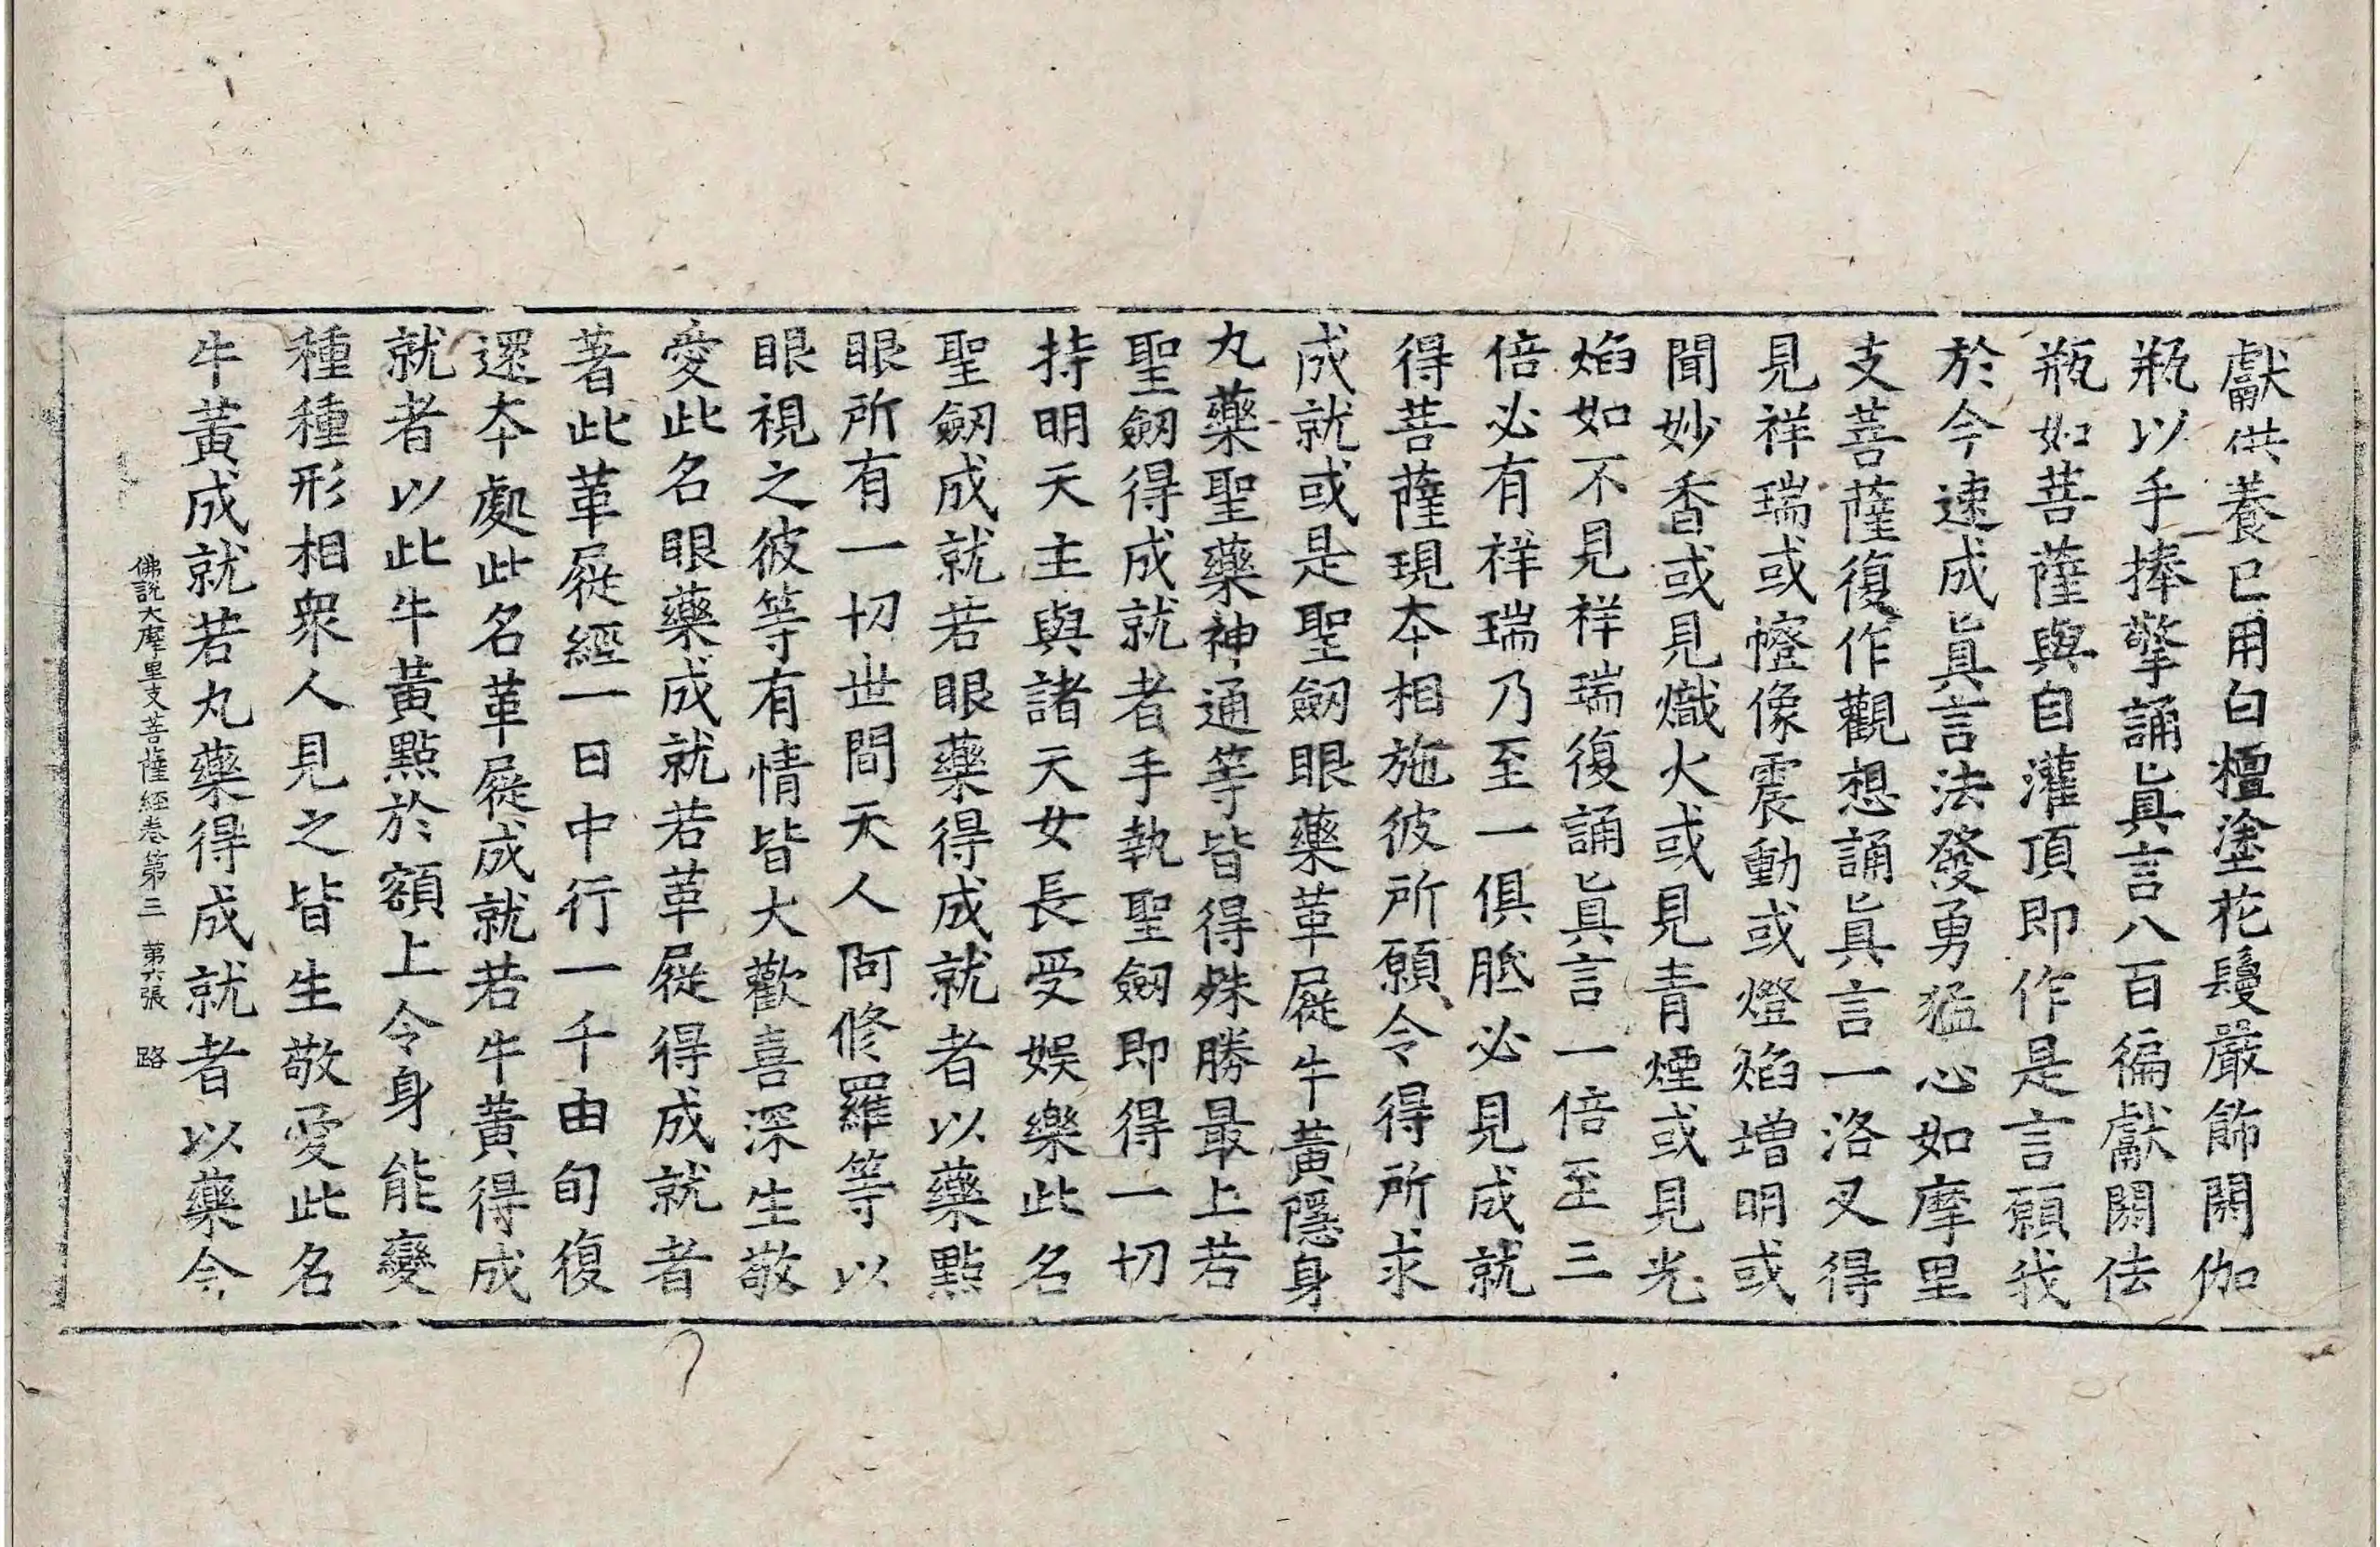 獻供養已用白檀塗花鬘嚴飾閼伽
瓶以手捧擎誦眞言八百徧獻閼伽
瓶如菩薩與自灌頂即作是言願我
於今速成眞言法發勇猛心如摩里
支菩薩復作觀想誦眞言一洛叉得
見祥瑞或幢像震動或燈焰增明或
聞妙香或見熾火或見青煙或見光
焰如不見祥瑞復誦眞言一倍至三
倍必有祥瑞乃至一俱胝必見成就
得菩薩現夲相施彼所願令得所求
成就或是聖劒眼藥革屣牛黃隱身
丸藥聖藥神通等皆得殊勝最上若
聖劒得成就者手執聖劒即得一切
持明天主與諸天女長受娛樂此名
聖劒成就若眼藥得成就者以藥點
眼所有一切世間天人阿修羅等以
眼視之彼等有情皆大歡喜深生敬
愛此名眼藥成就若革屣得成就者
著此革屣經一日中行一千由旬復
還夲處此名革屣成就若牛黃得成
就者以此牛黃點於額上令身能變
種種形相衆人見之皆生敬愛此名
牛黃成就若丸藥得成就者以藥令
佛說大摩里支菩薩經卷第三 第六張 路